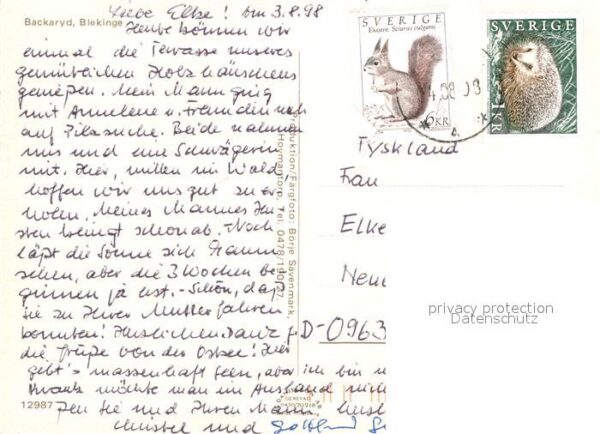 Backaryd, Blekinge
Liebe Elke! Am 3.8.98
Heute können wir
einmal die Terrasse unseres
gemütlichen Holzhäuschens
genießen. Mein Mann ging
mit Annelene u. Freundin noch
auf Pilzsuche. Beide nahmen
uns und eine Schwägerin
mit. Hier, mitten im Wald,
hoffen wir uns gut zu er-
holen. Meines Mannes Hu-
sten klingt schon ab. Noch
läßt die Sonne sich kaum
sehen, aber die 3 Wochen be-
ginnen ja erst. - Schön, daß
Sie zu Ihrer Mutter fahren
konnten! Herzlichen Dank f.
die Grüße von der Ostsee! Hier
gibt's massenhaft Seen, aber ich bin n
krank möchte man im Ausland nich
Sie und Ihren Mann herzl
Christel und Gottfried
12987
Produktion/Färgfoto: Börje Sävenmark,
Hovmantorp. Tel. 0478/190
SVERIGE
Ekorre Sciurus vulgaris
6 KR
SVERIGE
1 KR
4.08 98
Tyskland
Frau
Elke
Neu
D-0963
privacy protection
Datenschutz